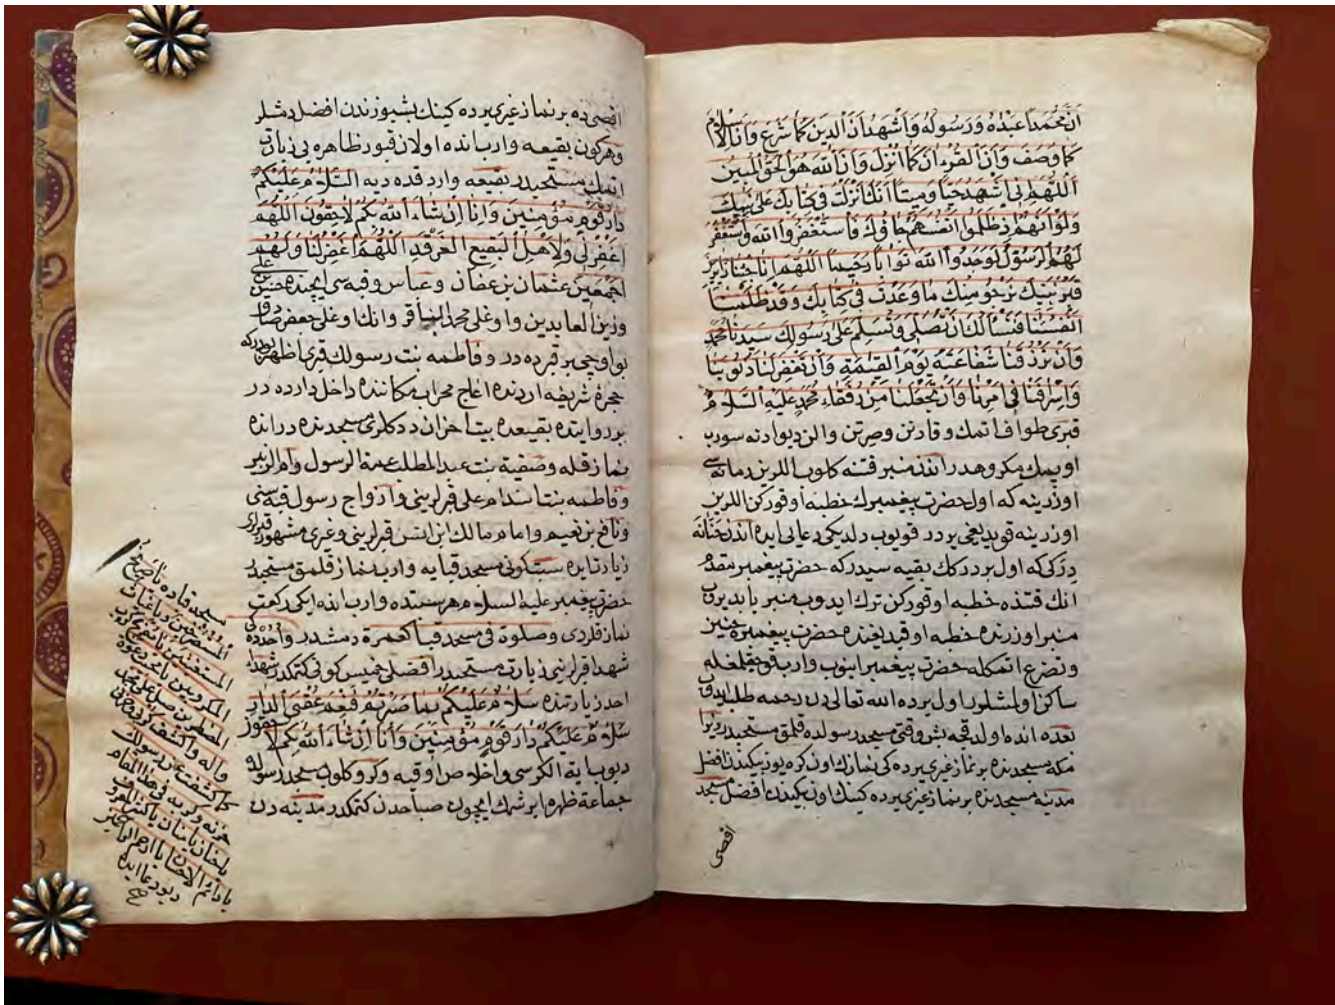 اَنَّ مُحَمَّدًا عَبْدُهُ وَرَسُولُهُ وَاَشْهَدُ اَنَّ الدِّينَ كَمَا شَرَعَ وَاَنَّ الْاِسْلَامَ
كَمَا وَصَفَ وَاَنَّ الْقُرْءَانَ كَمَا اُنْزِلَ وَاَنَّ اللّٰهَ هُوَ الْحَقُّ الْمُبِينُ
اَللّٰهُمَّ اِنِّى اَشْهَدُ حَيًّا وَمَيِّتًا اَنَّكَ اَنْزَلْتَ فِى كِتَابِكَ عَلَى نَبِيِّكَ
وَلَوْ اَنَّهُمْ اِذْ ظَلَمُوا اَنْفُسَهُمْ جَاؤُكَ فَاسْتَغْفَرُوا اللّٰهَ وَاسْتَغْفَرَ
لَهُمُ الرَّسُولُ لَوَجَدُوا اللّٰهَ تَوَّابًا رَحِيمًا اَللّٰهُمَّ اِنَّا جِئْنَا زَائِرِينَ
قَبْرَ نَبِيِّكَ نَرْجُو مِنْكَ مَا وَعَدْتَ فِى كِتَابِكَ وَقَدْ ظَلَمْنَا
اَنْفُسَنَا فَنَسْأَلُكَ اَنْ تُصَلِّىَ وَتُسَلِّمَ عَلَى رَسُولِكَ سَيِّدِنَا مُحَمَّدٍ
وَاَنْ تَرْزُقَنَا شَفَاعَتَهُ يَوْمَ الْقِيٰمَةِ وَاَنْ تَغْفِرَ لَنَا ذُنُوبَنَا
وَاِسْرَافَنَا فِى اَمْرِنَا وَاَنْ تَجْعَلَنَا مِنْ رُفَقَاءِ مُحَمَّدٍ عَلَيْهِ السَّلَامُ
قبرى طواف اتمك وقارنن وصرتن والن ديوارنه سورب
اوپمك مكروهدر اندن منبر قتنه كلوب اللرين رمانه سى
اوزرينه كه اول حضرت پيغمبرك خطبه اوقوركن اللرين
اوزرينه قويديغى يردر قويوب ديلديكى دعالى ايده اندن حنانه
ديركى كه اول بر ديرك بقيه سيدركه حضرت پيغمبر مقدم
انك قتنده خطبه اوقوركن ترك ايدوب منبر ياپديروب
منبر اوزرنده خطبه اوقيديغنده حضرت پيغمبره حنين
وتضرع اتمكله حضرت پيغمبر اينوب واروب قوجقلمغله
ساكن اولمشلور اول يرده الله تعالى دن رحمه طلب ايدوب
بعده انده اولدقجه بش وقتى مسجد رسولده قلمق مستحبدر زيرا
مكه مسجدنده بر نماز غيرى يرده كى نمازك اون كره يوز بيكندن افضل
مدينه مسجدنده بر نماز غيرى يرده كينك اون بيكندن افضل مسجد
اقصى
اقصى ده بر نماز غيرى يرده كينك بشيوزندن افضل دمشلر
وهر كون بقيعه واروب انده اولان قبور ظاهره يى زيارت
اتمك مستحبدر بقيعه وارد قده ديه اَلسَّلَامُ عَلَيْكُمْ
دَارَ قَوْمٍ مُؤْمِنِينَ وَاِنَّا اِنْ شَاءَ اللّٰهُ بِكُمْ لَاحِقُونَ اَللّٰهُمَّ
اغْفِرْلِى وَلِاَهْلِ الْبَقِيعِ الْغَرْقَدِ اَللّٰهُمَّ اغْفِرْ لَنَا وَلَهُمْ
اَجْمَعِينَ عثمان بن عفان وعباس وقبه سى ايچنده حسن بن على
وزين العابدين واوغلى محمد الباقر وانك اوغلى جعفر صادق
بو اوچى بر قبرده در وفاطمه بنت رسولك قبرى اظهر بودركه
حجرۀ شريفه اردنده اغاج محراب مكاننده داخل دارده در
بر روايتده بقيعده بيت احزان ددكلرى مسجدنده در انده
نماز قله وصفية بنت عبد المطلب عمة الرسول وام الزبير
وفاطمه بنت اسد ام على قبرلرينى وازواج رسول قبه سنى
ونافع بن نعيم وامام مالك ابن انس قبرلرينى وغيرى مشهور قبرلرى
زيارت ايده سبت كونى مسجد قبايه واروب نماز قلمق مستحبدر
حضرت پيغمبر عليه السلام هر سبتده واروب انده ايكى ركعت
نماز قلردى وصلوة فى مسجد قبا كعمرة دمشدر واحدده كى
شهدا قبرلرينى زيارت مستحبدر افضلى خميس كونى كتمكدر شهداء
احد زيارتنده سَلَامٌ عَلَيْكُمْ بِمَا صَبَرْتُمْ فَنِعْمَ عُقْبَى الدَّارِ
سَلَامٌ عَلَيْكُمْ دَارَ قَوْمٍ مُؤْمِنِينَ وَاِنَّا اِنْ شَاءَ اللّٰهُ بِكُمْ لَاحِقُونَ
ديوب اية الكرسى واخلاص اوقيه وكرو كلوب مسجد رسولده
جماعة ظهره ايرشمك ايچون صباحدن كتمكدر مدينه دن
مسجد قباده يا صريخ
المستصرخين وياغياث
المستغيثين يا مفرج كرب
المكروبين يا مجيب دعوة
المضطرين صل على محمد
واله واكشف كربى وحزنى
كما كشفت عن رسولك
حزنه وكربه فى هذا المقام
يا حنان يا منان يا كثير المعروف
يا دائم الاحسان يا ارحم الراحمين
ديو دعا ايده
صح